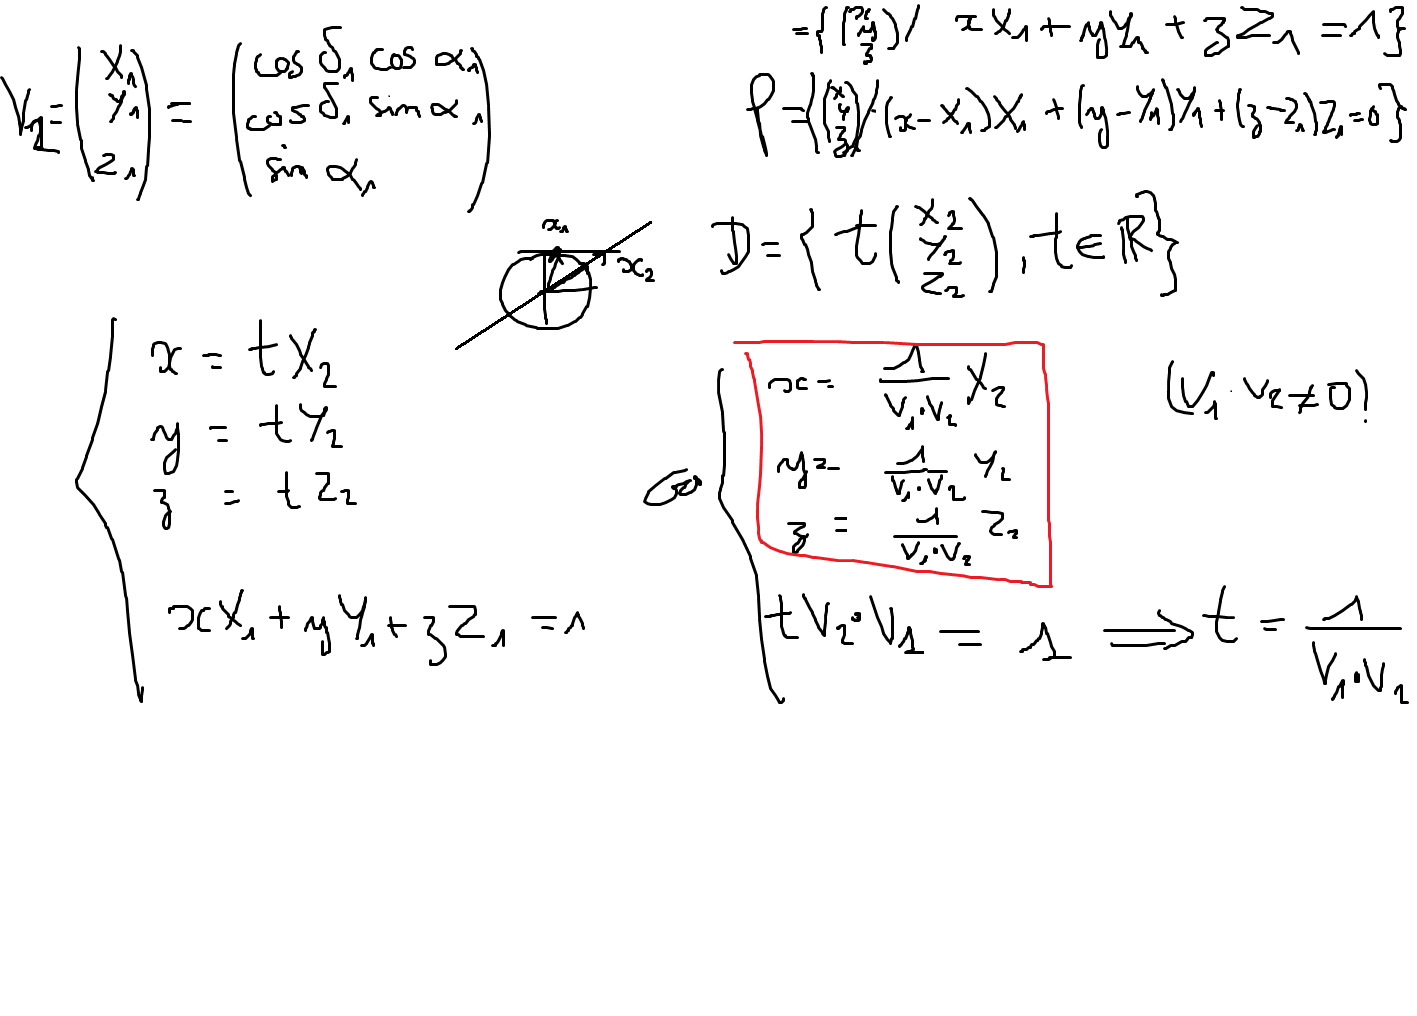 V₁ = (X₁ Y₁ Z₁) = (cos δ₁ cos α₁
cos δ₁ sin α₁
sin α₁)
= {(x y z) / xX₁ + yY₁ + zZ₁ = 1}
P = {(x y z) / (x - X₁)X₁ + (y - Y₁)Y₁ + (z - Z₁)Z₁ = 0}
D = {t (X₂ Y₂ Z₂), t ∈ ℝ}
x₁
x₂
x = tX₂
y = tY₂
z = tZ₂
xX₁ + yY₁ + zZ₁ = 1
x = 1/(V₁·V₂) X₂
(V₁·V₂ ≠ 0)
y = 1/(V₁·V₂) Y₂
z = 1/(V₁·V₂) Z₂
tV₂·V₁ = 1 ⟹ t = 1/(V₁·V₂)